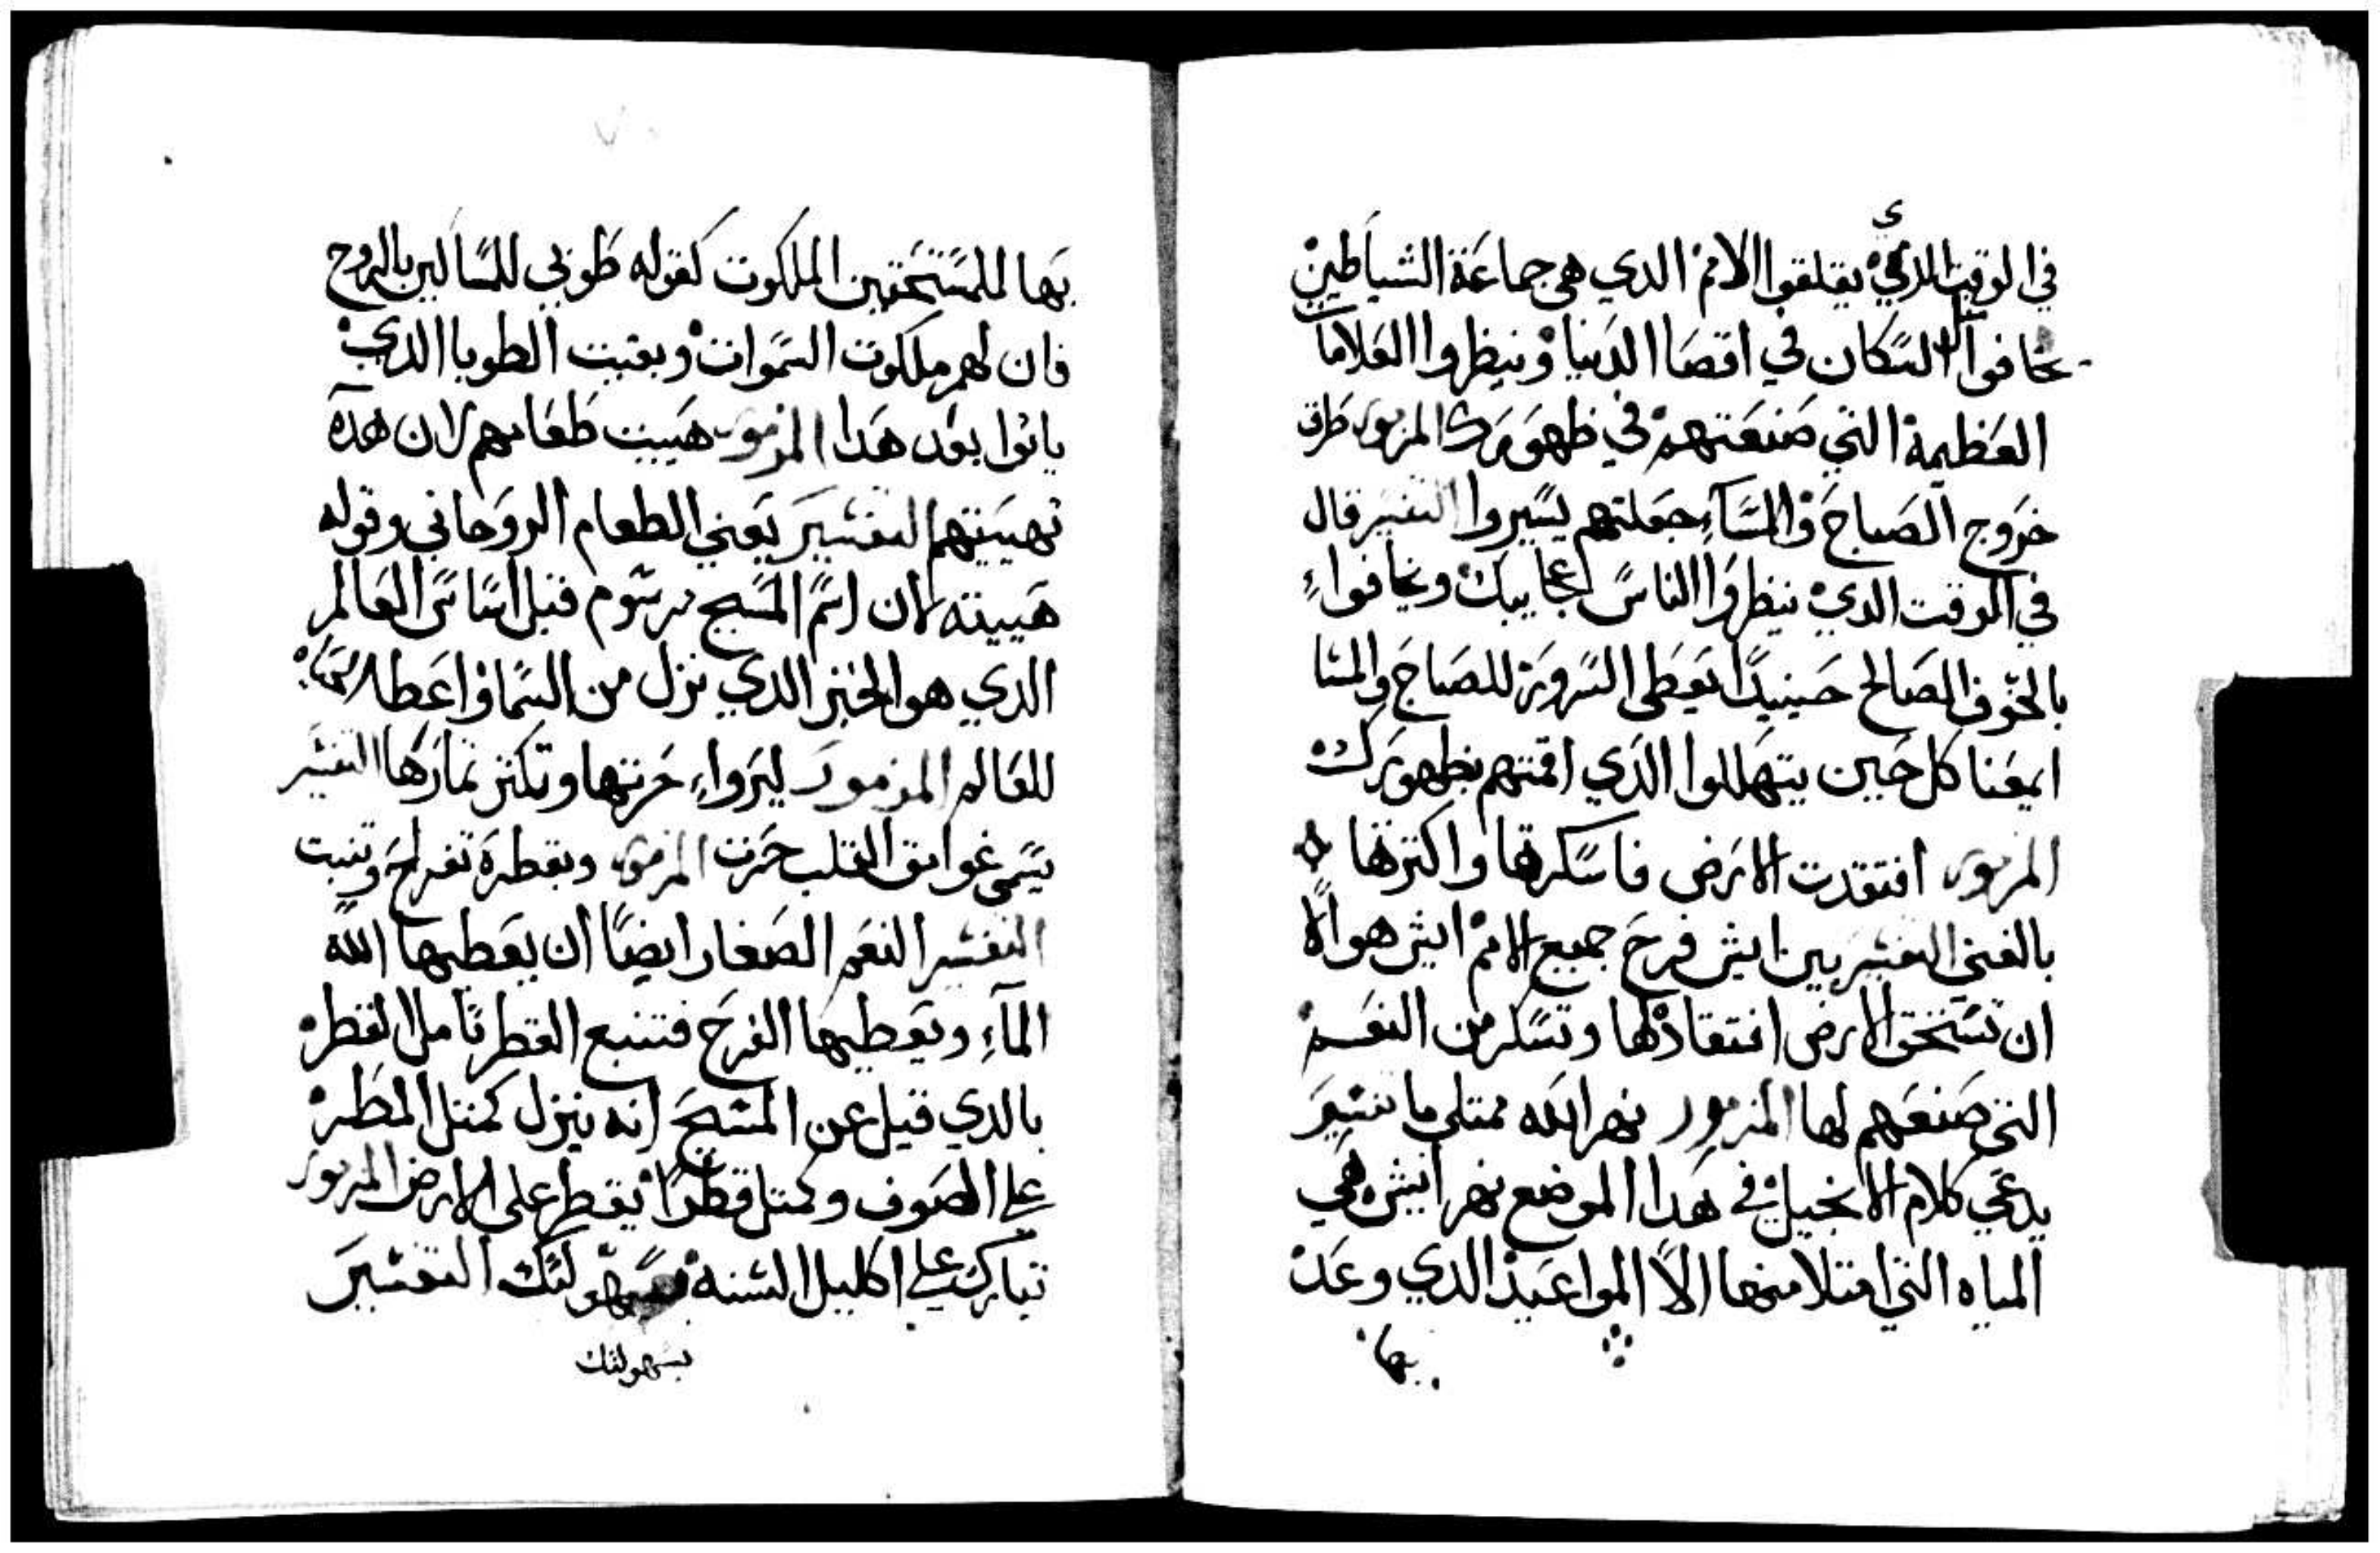 في الوقت الدي يقلقوا الامم الدي هي جماعة الشياطين
يخافوا السكان في اقصا الدنيا وينظروا العلاما
العظيمة التي صنعتهم في ظهورك المزمور طرق
خروج الصباح والمسآء جعلتهم يسيروا التفسير قال
في الوقت الدي ينظروا الناس عجايبك ويخافواء
بالخوف الصالح حينيدًا يعطي السرور للصباح والمسا
ايمعنا كل حين يتهللوا الدي اقمتهم بظهورك
المزمور افتقدت الارض فاسكرتها واكترتها
بالغني التفسير بين ايش فرح جميع الامم ايش هو الا
ان تستحق الارض افتقادها وتسكر من النعم
التي صنعهم لها المزمور نهر الله ممتلي ما تفسير
يدعي كلام الانجيل في هدا الموضع نهر ايش هي
المياه التي امتلا منها الا المواعيد الدي وعد
بها
بها للمستحقين الملكوت كقوله طوبي للمساكين بالروح
فان لهم ملكوت السموات وبقيت الطوبا الدي
ياتوا بعد هدا المزمور هييت طعامهم لان هده
تهييتهم التفسير يعني الطعام الروحاني وقوله
هييته لان اسم المسيح مرسوم قبل اساس العالم
الدي هو الخبز الدي نزل من السما واعطا الحياة
للعالم المزمور ليرواء حرتها وتكتر تمارها التفسير
يسمي غوامق القلب حرت المزمور وبقطره تفرح وتنبت
التفسير النعم الصغار ايضًا ان يعطيها الله
المآء ويعطيها الفرح فتنبع القطر تامل القطر
بالدي قيل عن المسيح انه ينزل كمتل المطر
علي الصوف وكمتل قطرًا يقطر علي الارض المزمور
تبارك علي اكليل السنة بسهولتك التفسير
بسهولتك